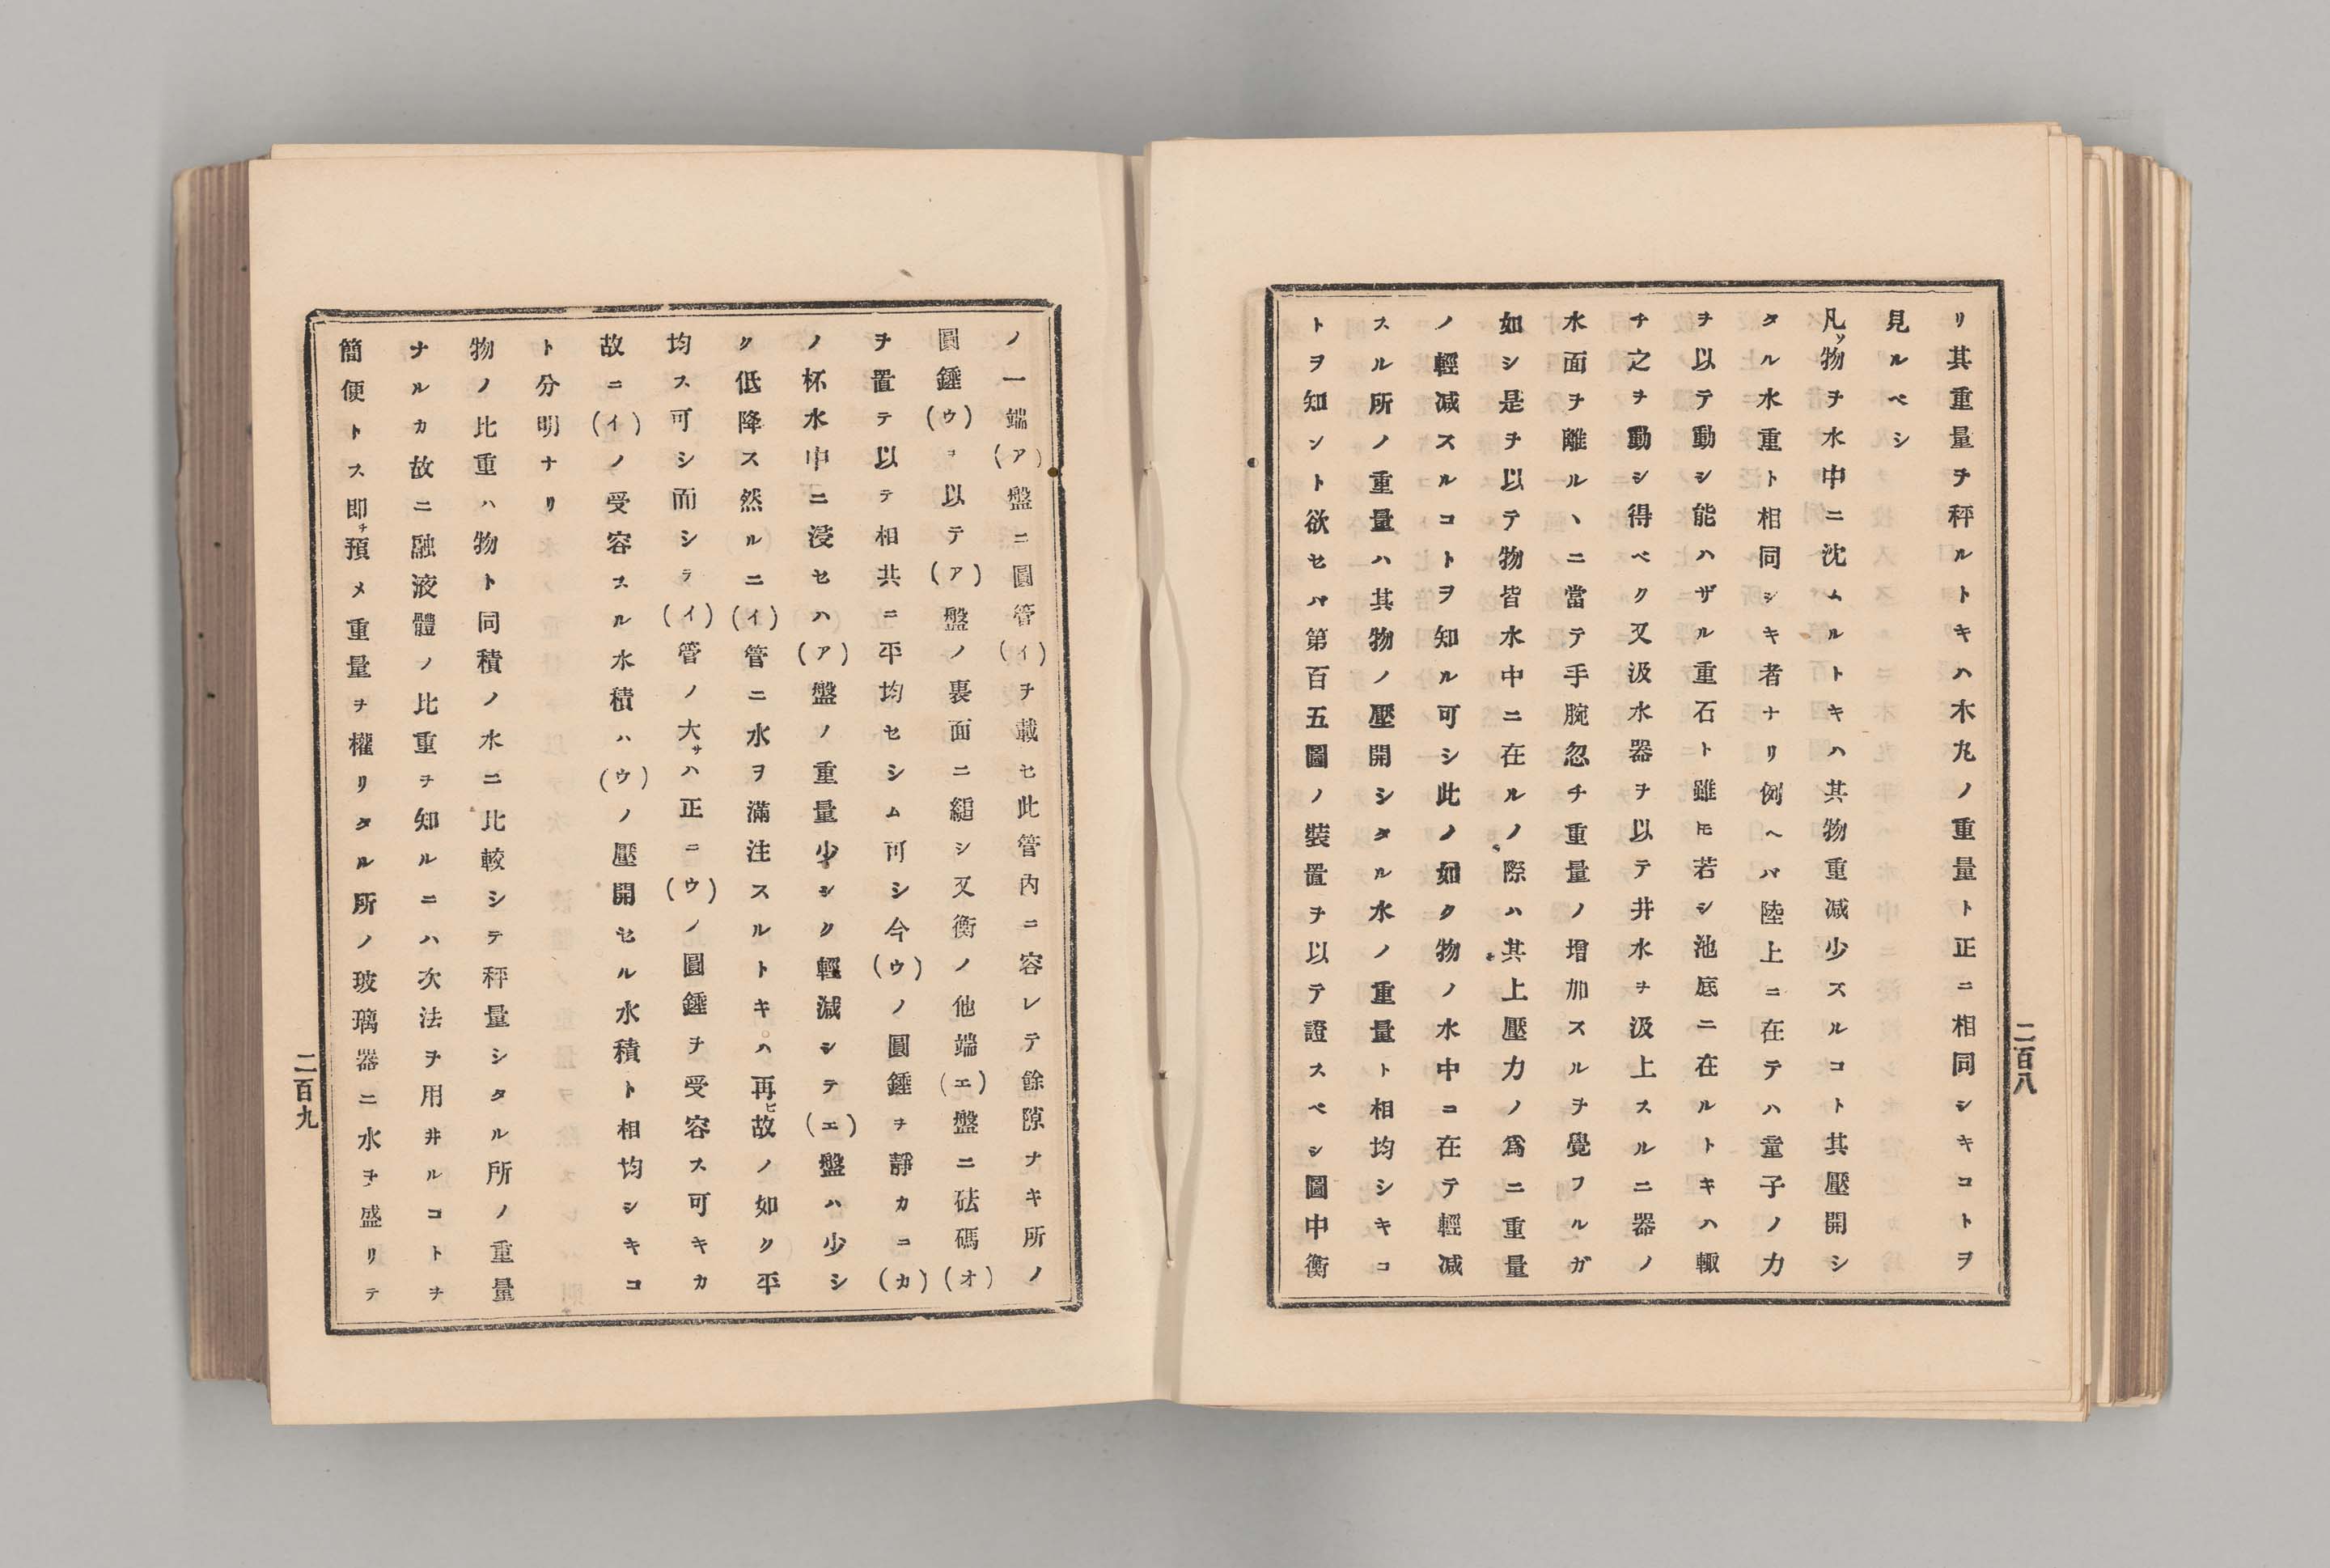 リ其重量ヲ秤ルトキハ木丸ノ重量ト正ニ相同シキコトヲ
見ルベシ
凡ソ物ヲ水中ニ沈ムルトキハ其物重減少スルコト其壓開シ
タル水重ト相同シキ者ナリ例ヘバ陸上ニ在テハ童子ノ力
ヲ以テ動シ能ハザル重石ト雖𪜈若シ池底ニ在ルトキハ輙
チ之ヲ動シ得ベク又汲水器ヲ以テ井水ヲ汲上スルニ器ノ
水面ヲ離ルヽニ當テ手腕忽チ重量ノ增加スルヲ覺フルガ
如シ是ヲ以テ物皆水中ニ在ルノ際ハ其上壓力ノ爲ニ重量
ノ輕减スルコトヲ知ル可シ此ノ如ク物ノ水中コ在テ輕减
スル所ノ重量ハ其物ノ壓開シタル水ノ重量ト相均シキコ
トヲ知ント欲セバ第百五圖ノ裝置ヲ以テ證スベシ圖中衡
二百八
ノ一端(ア)盤ニ圓管(イ)ヲ載セ此管內ニ容レテ餘隙ナキ所ノ
圓錘(ウ)ヲ以テ(ア)盤ノ裏面ニ縋シ又衡ノ他端(エ)盤ニ砝碼(オ)
ヲ置テ以テ相共ニ平均セシム可シ今(ウ)ノ圓錘ヲ靜カニ(カ)
ノ杯水中ニ浸セハ(ア)盤ノ重量少シク輕减シテ(エ)盤ハ少シ
ク低降ス然ルニ(イ)管ニ水ヲ滿注スルトキハ再ヒ故ノ如ク平
均ス可シ而シテ(イ)管ノ大サハ正ニ(ウ)ノ圓錘ヲ受容ス可キカ
故ニ(イ)ノ受容スル水積ハ(ウ)ノ壓開セル水積ト相均シキコ
ト分明ナリ
物ノ比重ハ物ト同積ノ水ニ比較シテ秤量シタル所ノ重量
ナルカ故ニ融液體ノ比重ヲ知ルニハ次法ヲ用井ルコトヲ
簡便トス即チ預メ重量ヲ權リタル所ノ玻璃器ニ水ヲ盛リテ
二百九